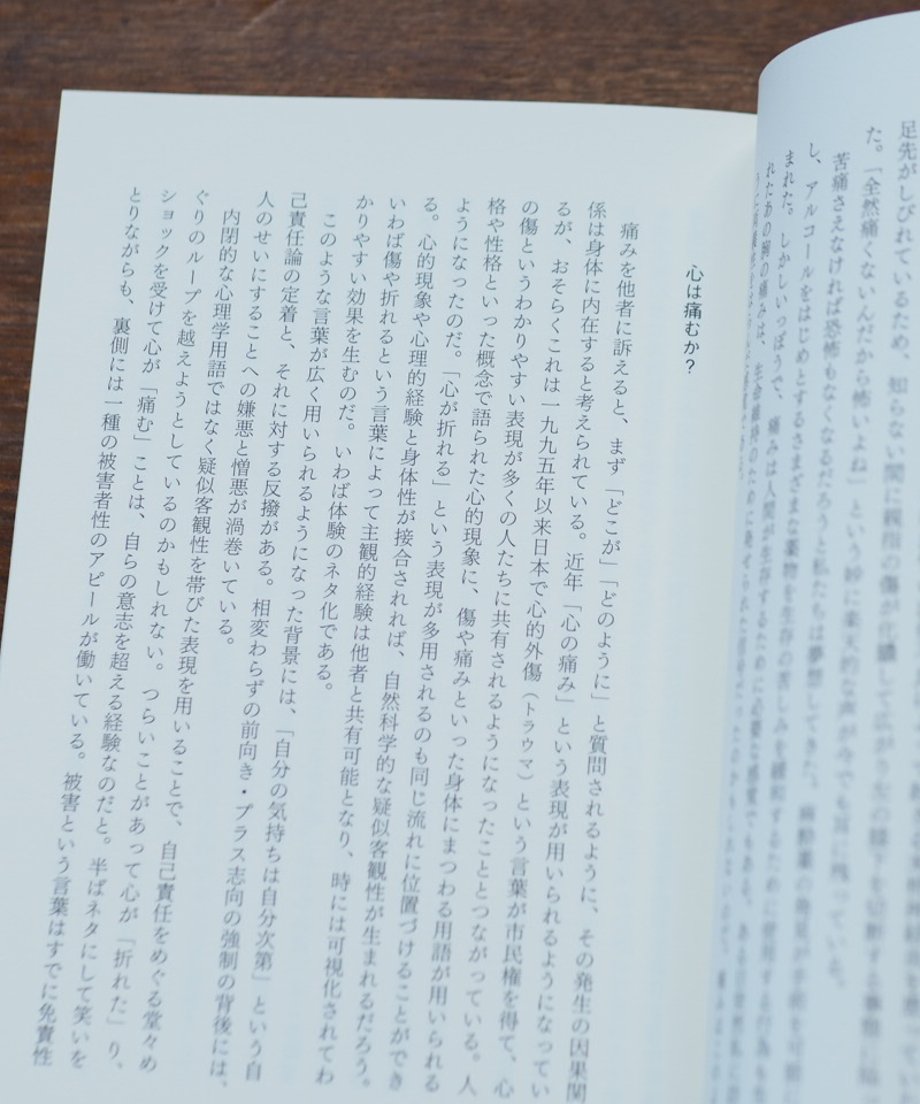 足先がしびれているため、知らない間に親指の傷が化膿して広がり左の膝下を切断する事態に陥
た。「全然痛くないんだから怖いよね」という妙に楽天的な声が今でも耳に残っている。
苦痛さえなければ恐怖もなくなるだろうと私たちは夢想してきた。麻酔薬の発見が手術を可能に
し、アルコールをはじめとするさまざまな薬物を生存の苦しみを緩和するため
まれた。しかしいっぽうで、痛みは人間が生存するために必要な感覚でもある。
れたあの胸の痛みは、生命維持のために発せられた
心は痛むか？
痛みを他者に訴えると、まず「どこが」「どのように」と質問されるように、その発生の因果関
係は身体に内在すると考えられている。近年「心の痛み」という表現が用いられるようになってい
るが、おそらくこれは一九九五年以来日本で心的外傷（トラウマ）という言葉が市民権を得て、心
の傷というわかりやすい表現が多くの人たちに共有されるようになったこととつながっている。人
格や性格といった概念で語られた心的現象に、傷や痛みといった身体にまつわる用語が用いられる
ようになったのだ。「心が折れる」という表現が多用されるのも同じ流れに位置づけることができ
る。心的現象や心理的経験と身体性が接合されれば、自然科学的な疑似客観性が生まれるだろう。
いわば傷や折れるという言葉によって主観的経験は他者と共有可能となり、時には可視化されてわ
かりやすい効果を生むのだ。いわば体験のネタ化である。
このような言葉が広く用いられるようになった背景には、「自分の気持ちは自分次第」という自
己責任論の定着と、それに対する反撥がある。相変わらずの前向き・プラス志向の強制の背後には、
人のせいにすることへの嫌悪と憎悪が渦巻いている。
内閉的な心理学用語ではなく疑似客観性を帯びた表現を用いることで、自己責任をめぐる堂々め
ぐりのループを越えようとしているのかもしれない。つらいことがあって心が「折れた」り、
ショックを受けて心が「痛む」ことは、自らの意志を超える経験なのだと。半ばネタにして笑いを
とりながらも、裏側には一種の被害者性のアピールが働いている。被害という言葉はすでに免責性